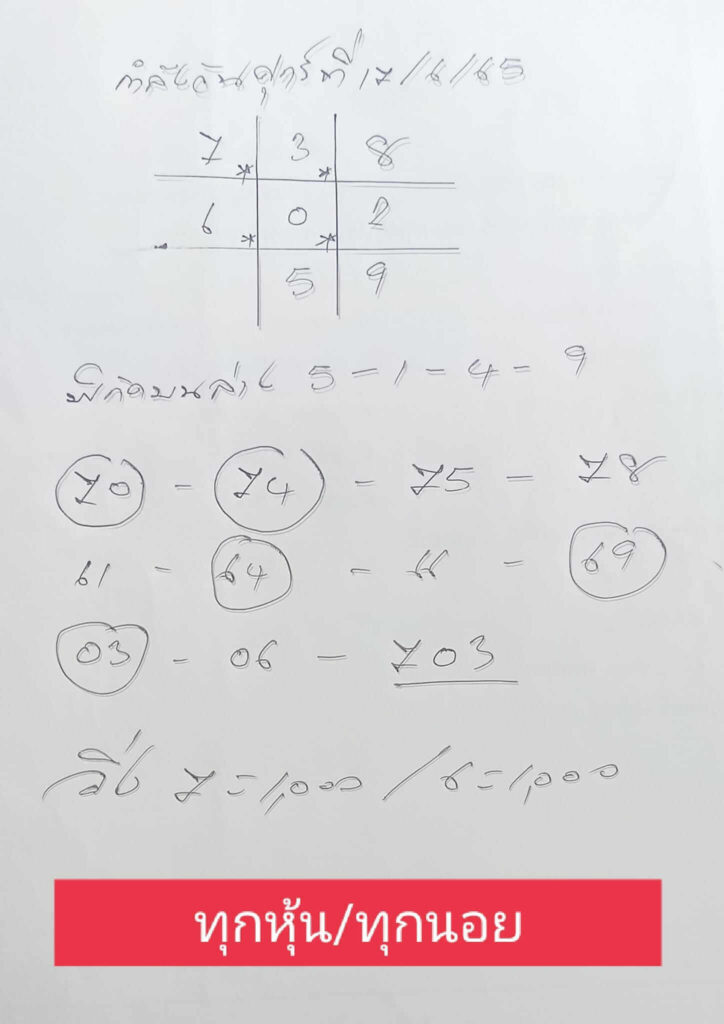 กำลังวันศุกร์ที่ 17/6/65
7 * 3 * 8
6 * 0 * 2
5 9
พิกัดบนล่าง 5-1-4-9
70 - 74 - 75 - 78
61 - 64 - 66 - 69
03 - 06 - 703
วิ่ง 7=1,000 / 6=1,000
ทุกหุ้น/ทุกนอย